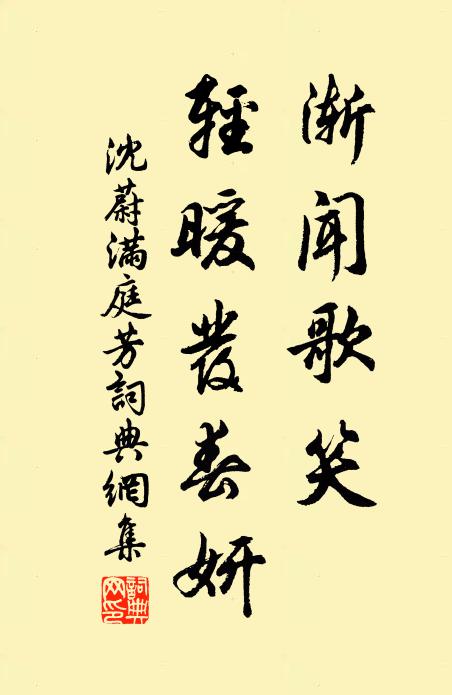 漸聞歌笑
輕暖發春妍
沈蔚滿庭芳詞典網集
詞典網印